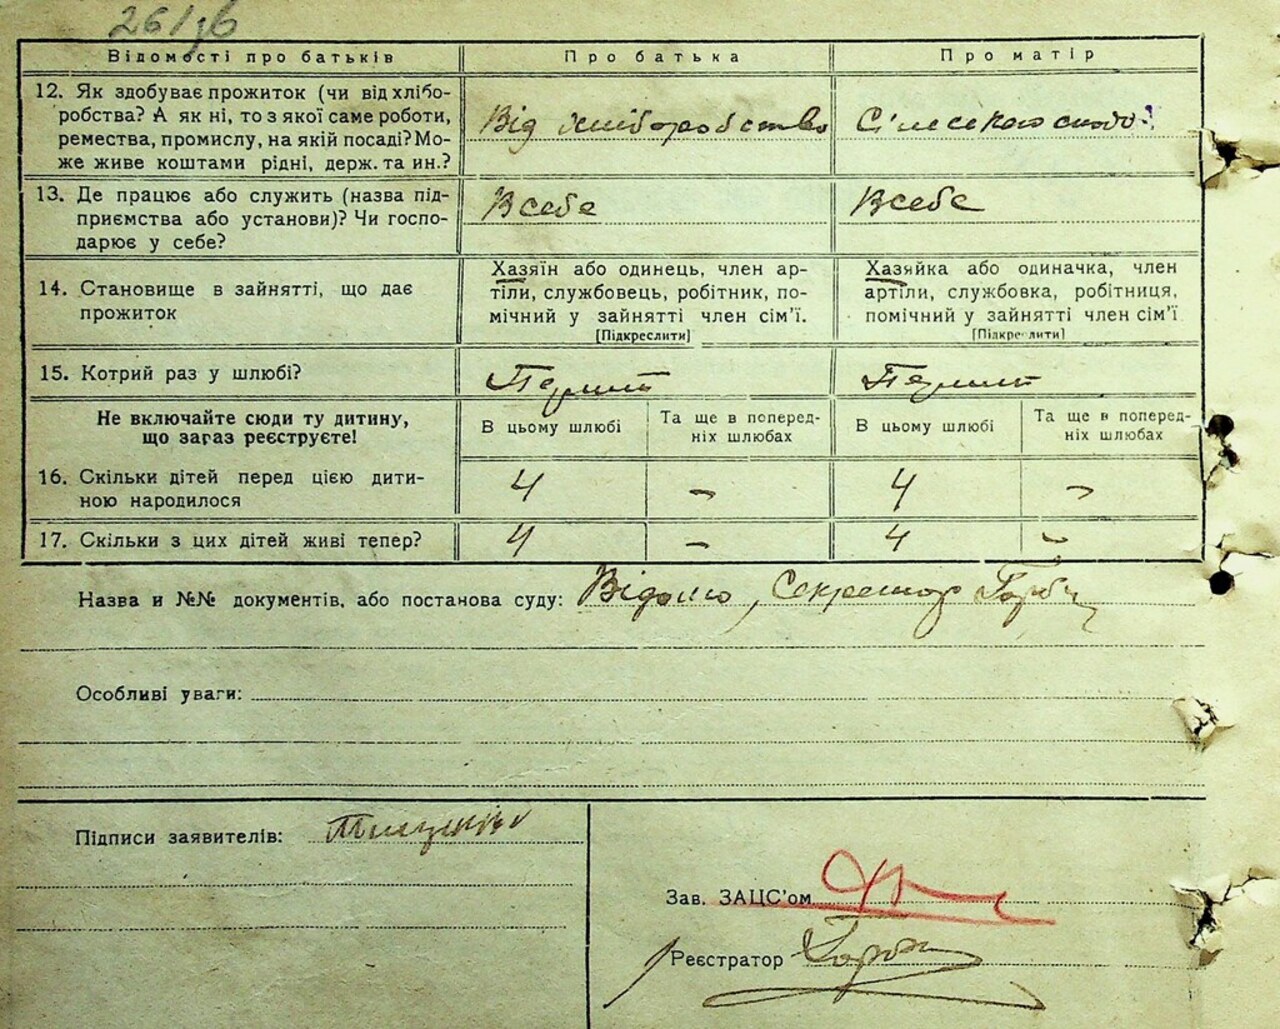 Відомості про батьків
Про батька
Про матір
12. Як здобуває прожиток (чи від хлібо-
робства? А як ні, то з якої саме роботи,
ремества, промислу, на якій посаді? Мо-
же живе коштами рідні, держ. та ин.?
Від хліборобства
13. Де працює або служить (назва під-
приємства або установи)? Чи госпо-
дарює у себе?
Всебе
Всебе
14. Становище в зайнятті, що дає
прожиток
Хазяїн або одинець, член ар-
тіли, службовець, робітник, по-
мічний у зайнятті член сім'ї.
[Підкреслити]
Хазяйка або одиначка, член
артіли, службовка, робітниця,
помічний у зайнятті член сім'ї
[Підкреслити]
15. Котрий раз у шлюбі?
Не включайте сюди ту дитину,
що зараз реєструєте!
В цьому шлюбі
Та ще в поперед-
ніх шлюбах
В цьому шлюбі
Та ще в поперед-
ніх шлюбах
16. Скільки дітей перед цією дити-
ною народилося
4
-
4
-
17. Скільки з цих дітей живі тепер?
4
-
4
-
Назва и №№ документів, або постанова суду: Відомо, Секретар
Особливі уваги:
Підписи заявителів:
Зав. ЗАЦС'ом
Реєстратор